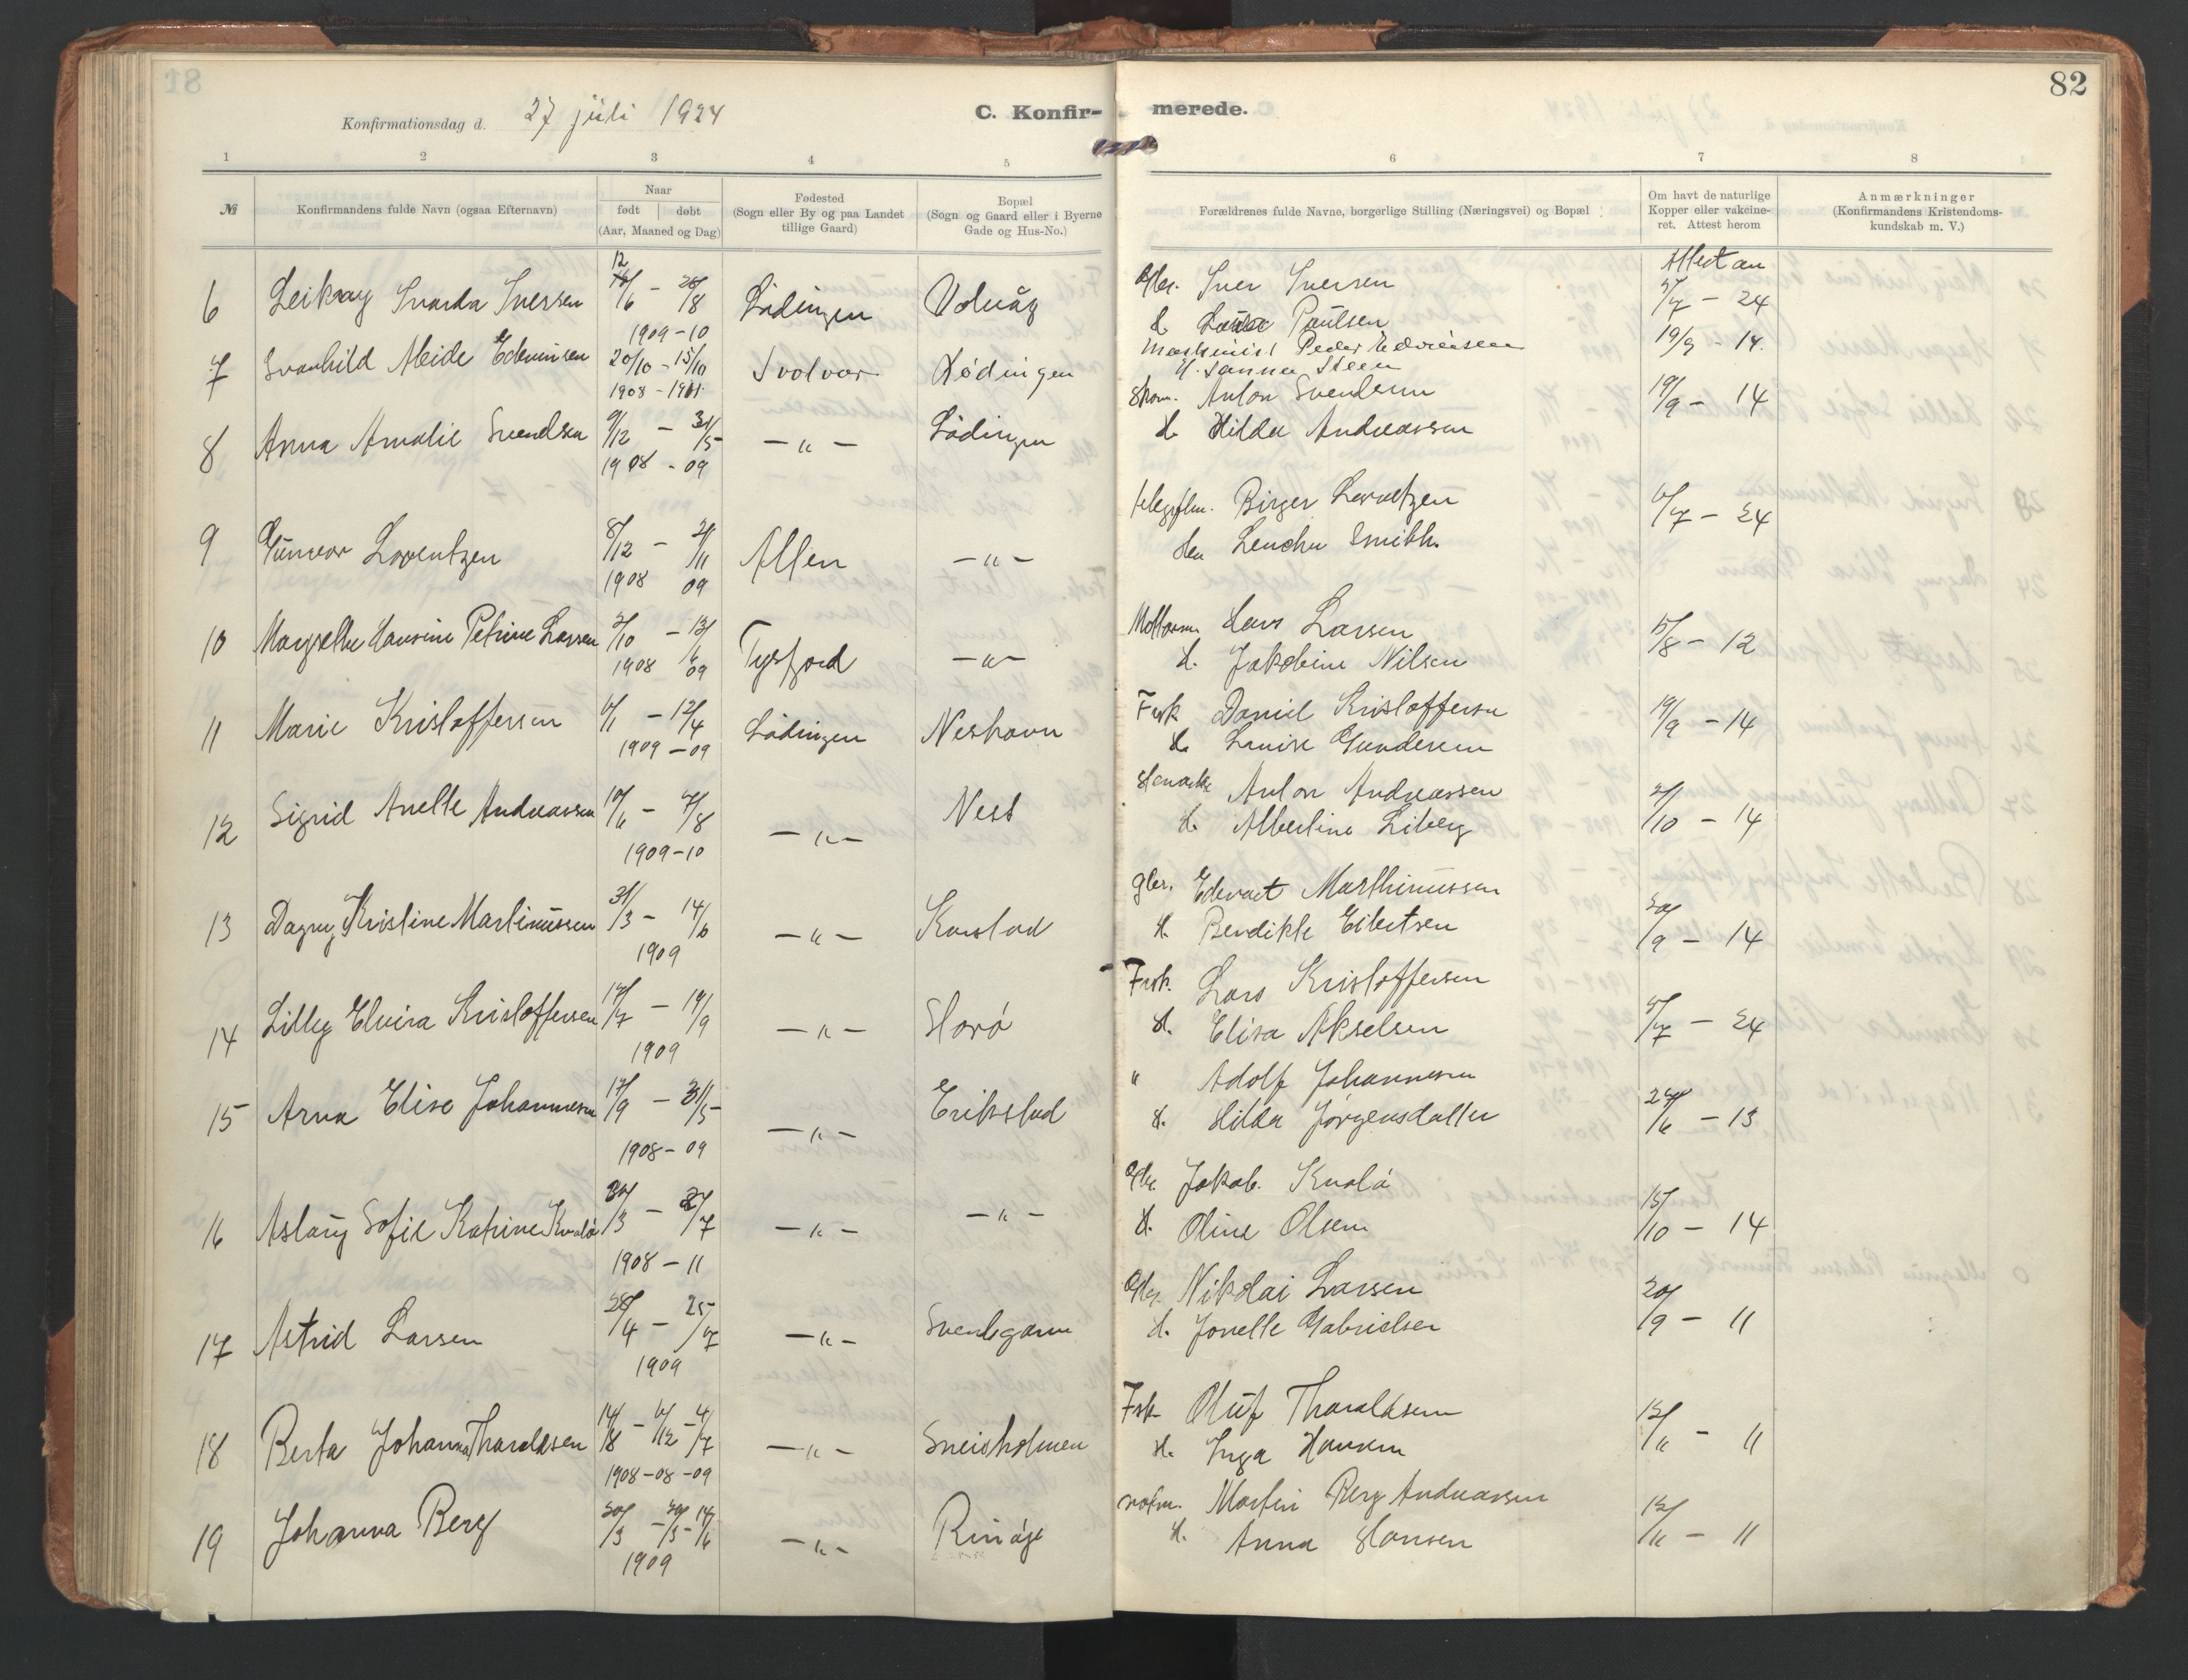 82
Konfirmationsdag d. 27 juli 1924
C. Konfir-
merede.
1 2 3 4 5 6 7 8
№
Konfirmandens fulde Navn (ogsaa Efternavn)
Naar
født | døbt
(Aar, Maaned og Dag)
Fødested
(Sogn eller By og paa Landet
tillige Gaard)
Bopæl
(Sogn og Gaard eller i Byerne
Gade og Hus-No.)
Forældrenes fulde Navne, borgerlige Stilling (Næringsvei) og Bopæl
Om havt de naturlige
Kopper eller vakcine-
ret. Attest herom
Anmærkninger
(Konfirmandens Kristendoms-
kundskab m. V.)
6 Svarda Iversen 12/6 - 28/8 1909-10 Lødingen
Iver Iversen
H. Paulsen
Attest av
5/7 - 24
7 Svanhild Edvinsen 20/10 - 15/10 1908 - Svolvær Lødingen
Maskinist Peder Edvinsen
H. Sanna Steen
19/9 - 14.
8 Anna Amalie Svendsen 9/12 - 31/5 1908 - 09 -"- Lødingen
Anton Svendsen
H. Hilda Andreassen
19/9 - 14
9 Gunvor Lorentzen 8/12 - 21/11 1908 09 -"-
Birger Lorentzen
Smith.
6/7 - 24
10 Hansine Petrine Larsen 2/10 - 13/6 1908 09 Tysfjord -"-
Hans Larsen
H. Jakobine Nilsen
15/8 - 12
11 Marie Kristoffersen 6/1 - 12/4 1909 - 09 Lødingen Neshavn
Fisk Daniel Kristoffersen
H. Lovise Gundersen
19/9 - 14
12 Sigrid Anelle Andreassen 10/6 - 7/8 1909-10 -"- Nest
Anton Andreassen
H. Albertine Liberg
2/10 - 14
13 Dagny Kristine Martinussen 31/3 - 14/6 1909 -"- Karstad
gbr. Edvart Marthinussen
H. Bendikte Eilertsen
20/9 - 14
14 Lilly Elvira Kristoffersen 17/7 - 19/9 1909 -"- Storø
Fisk. Lars Kristoffersen
H. Elisa Akselsen
5/7 - 24
15 Arna Elise Johannesen 17/9 - 31/5 1908 - 09 -"- Erikstad
" Adolf Johannesen
H. Hilda Jørgensdatter
24/6 - 13
16 Aslaug Sofie Katrine Kvalø 30/3 - 27/7 1908 - 11 -"- -"-
Gbr. Jakob. Kvalø
H. Oline Olsen
15/10 - 14
17 Astrid Larsen 28/4 - 25/7 1909 -"- Svendsgam
Gbr. Nikolai Larsen
H. Jonelle Gabrielsen
20/9 - 11
18 Berta Johanna Tharaldsen 14/8 - 6/12 - 4/7 1908 - 08 - 09 -"- Sneisholmen
Fisk Oluf Tharaldsen
H. Inga Hansen
12/11 - 11
19 Johanna Berg 20/3 - 30/5 - 14/6 1909 -"- Rinøy
Martin Berg Andreassen
H. Anna Hansen
12/11 - 11